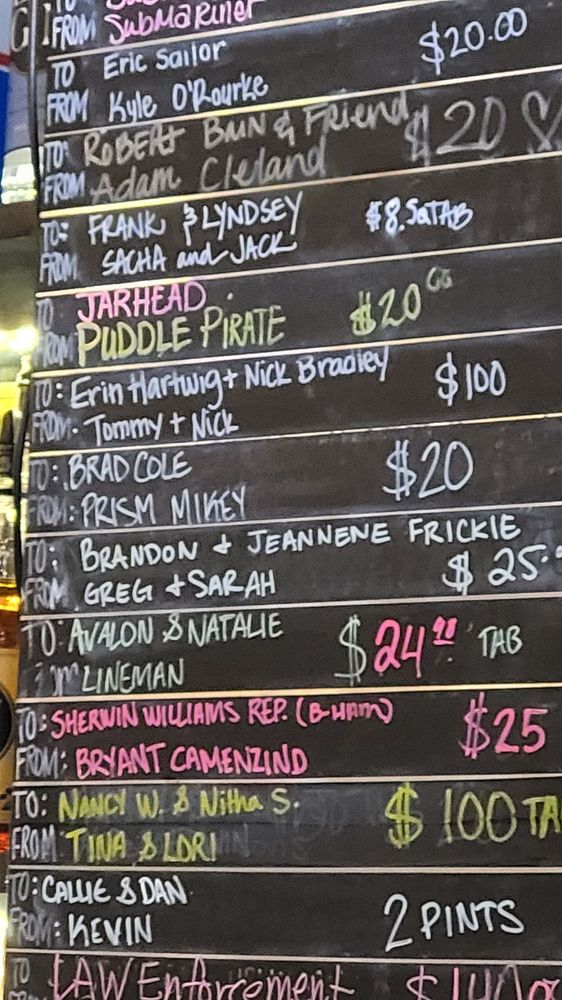 FROM SUBMARINER
TO Eric Sailor $20.00
FROM Kyle O'Rourke
TO: ROBERT BAIN & Friend $20
FROM Adam Cleland
TO: FRANK & LYNDSEY $8.50 TAB
FROM SACHA and JACK
TO JARHEAD $20
FROM PUDDLE PIRATE
TO: Erin Hartwig + Nick Bradley $100
FROM: Tommy + Nick
TO: BRAD COLE $20
FROM: PRISM MIKEY
TO: BRANDON & JEANNENE FRICKIE
FROM GREG & SARAH $25.
TO: AVALON & NATALIE $24 TAB
From LINEMAN
TO: SHERWIN WILLIAMS REP. (B-HAM) $25
FROM: BRYANT CAMENZIND
TO: NANCY W. & Nitha S. $100 TA
FROM TINA & LORI
TO: CALLIE & DAN
FROM: KEVIN 2 PINTS
TO LAW Enforcement